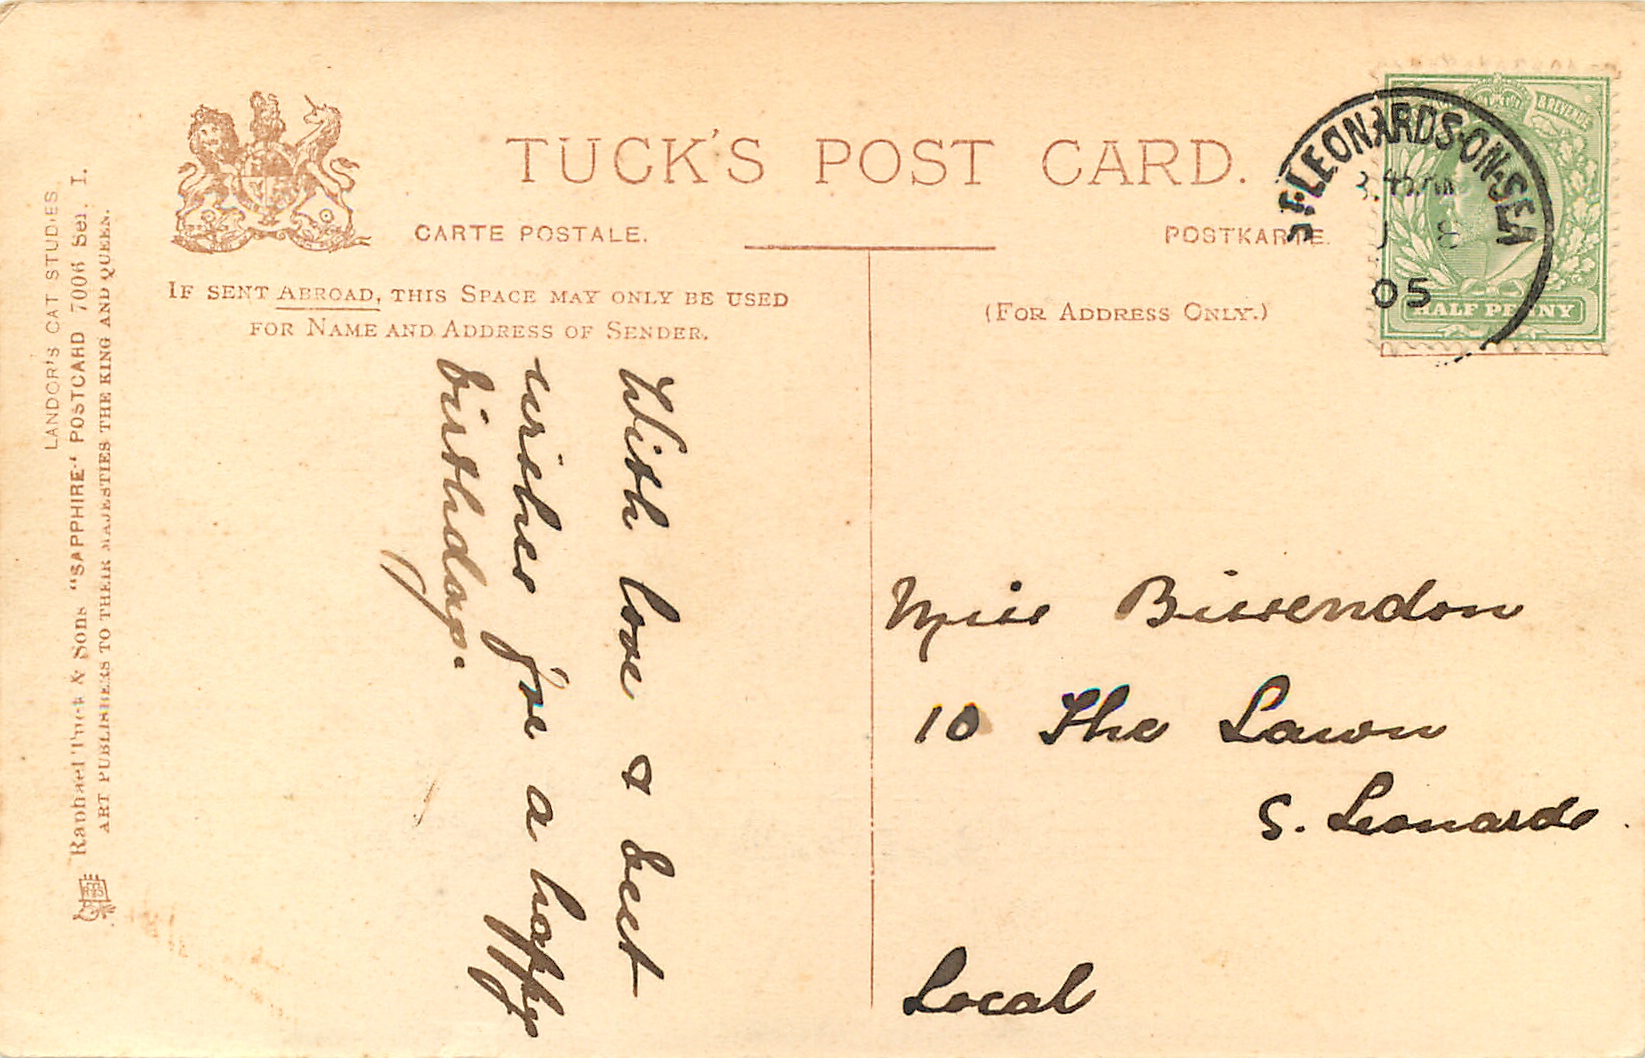 TUCK'S POST CARD.
CARTE POSTALE.
POSTKARTE.
IF SENT ABROAD, THIS SPACE MAY ONLY BE USED
FOR NAME AND ADDRESS OF SENDER.
(FOR ADDRESS ONLY.)
ST LEONARDS-ON-SEA
05
& REVENUE
HALF PENNY
LANDOR'S CAT STUDIES
Raphael Tuck & Sons "SAPPHIRE" POSTCARD 7006 Ser. I.
ART PUBLISHERS TO THEIR MAJESTIES THE KING AND QUEEN.
With love & best
wishes for a happy
birthday.
Miss Bissendon
10 The Lawn
S. Leonards.
Local